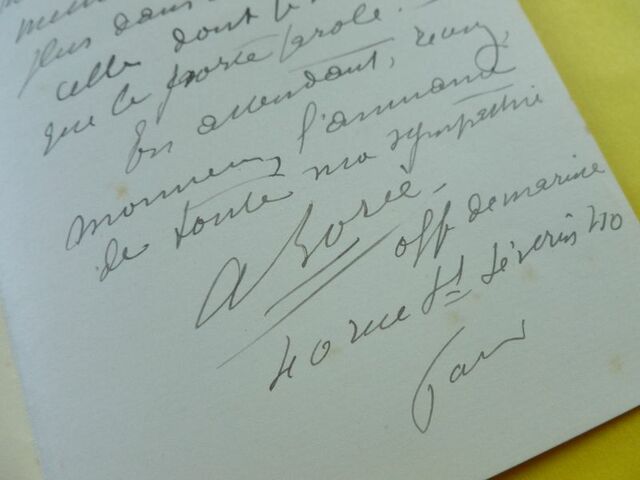 plus dans
celle dont
que le porte parole.
En attendant, recevez,
monsieur, l'assurance
de toute ma sympathie
A Borié
off de marine
40 rue St Séverin 40
Paris